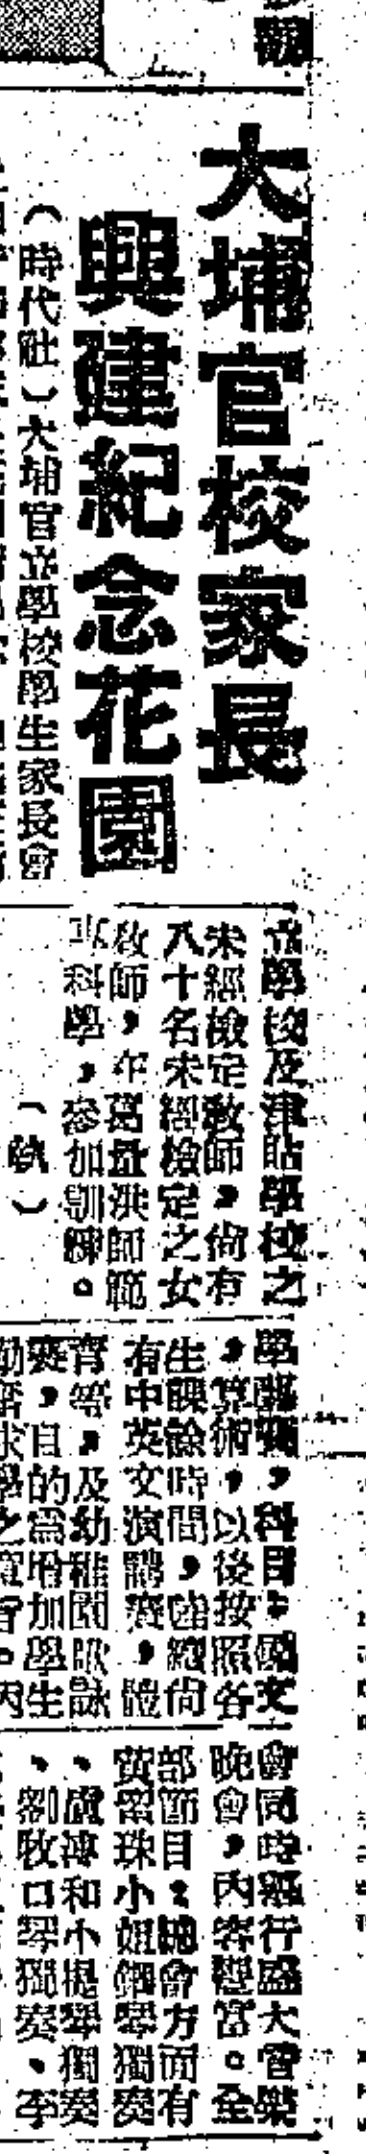 大埔官校家長
興建紀念花園
（時代社）大埔官立學校學生家長會
立學校及津貼學校之
未經檢定教師，尙有
八十名未經檢定之女
敎師，在葛量洪師範
專科學，參加訓練。
（執）
學競賽，科目：國文
，算術，以後按照各
生課餘時間，陸續尙
有中英文演講賽，體
育等，及幼稚園歌詠
賽，目的爲增加學生
會同時舉行盛大音樂
晚會，內容豐富。全
部節目：總會方面有
黃習珠小姐鋼琴獨奏
、盧淳和小提琴獨奏
、劉牧口琴獨奏、李